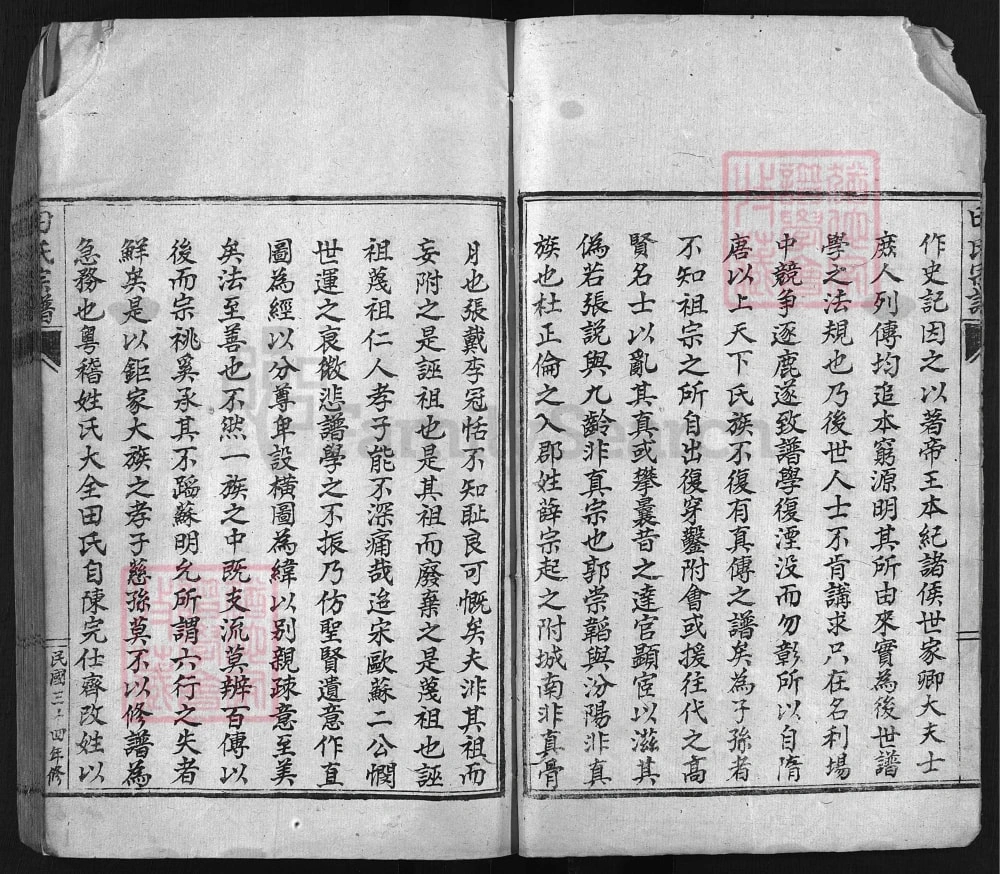 田氏宗譜
作史記因之以著帝王本紀諸侯世家卿大夫士
庶人列傳均追本窮源明其所由來實為後世譜
學之法規也乃後世人士不肯講求只在名利場
中競争逐鹿遂致譜學復湮没而勿彰所以自隋
唐以上天下氏族不復有真傳之譜矣為子孫者
不知祖宗之所自出復穿鑿附會或援往代之高
賢名士以亂其真或攀曩昔之達官顯宦以滋其
偽若張説與九齡非真宗也郭崇韜與汾陽非真
族也杜正倫之入郡姓薛宗起之附城南非真骨
月也張戴李冠恬不知耻良可慨矣夫非其祖而
妄附之是誣祖也是其祖而廢棄之是蔑祖也誣
祖蔑祖仁人孝子能不深痛哉迨宋歐蘇二公憫
世運之衰微悲譜學之不振乃仿聖賢遺意作直
圖為經以分尊卑設橫圖為緯以别親疎意至美
矣法至善也不然一族之中既支流莫辨百傳以
後而宗祧奚承其不蹈蘇明允所謂六行之失者
鮮矣是以鉅家大族之孝子慈孫莫不以修譜為
急務也粤稽姓氏大全田氏自陳完仕齊改姓以
田氏宗譜
民國三十四年修
FamilySearch